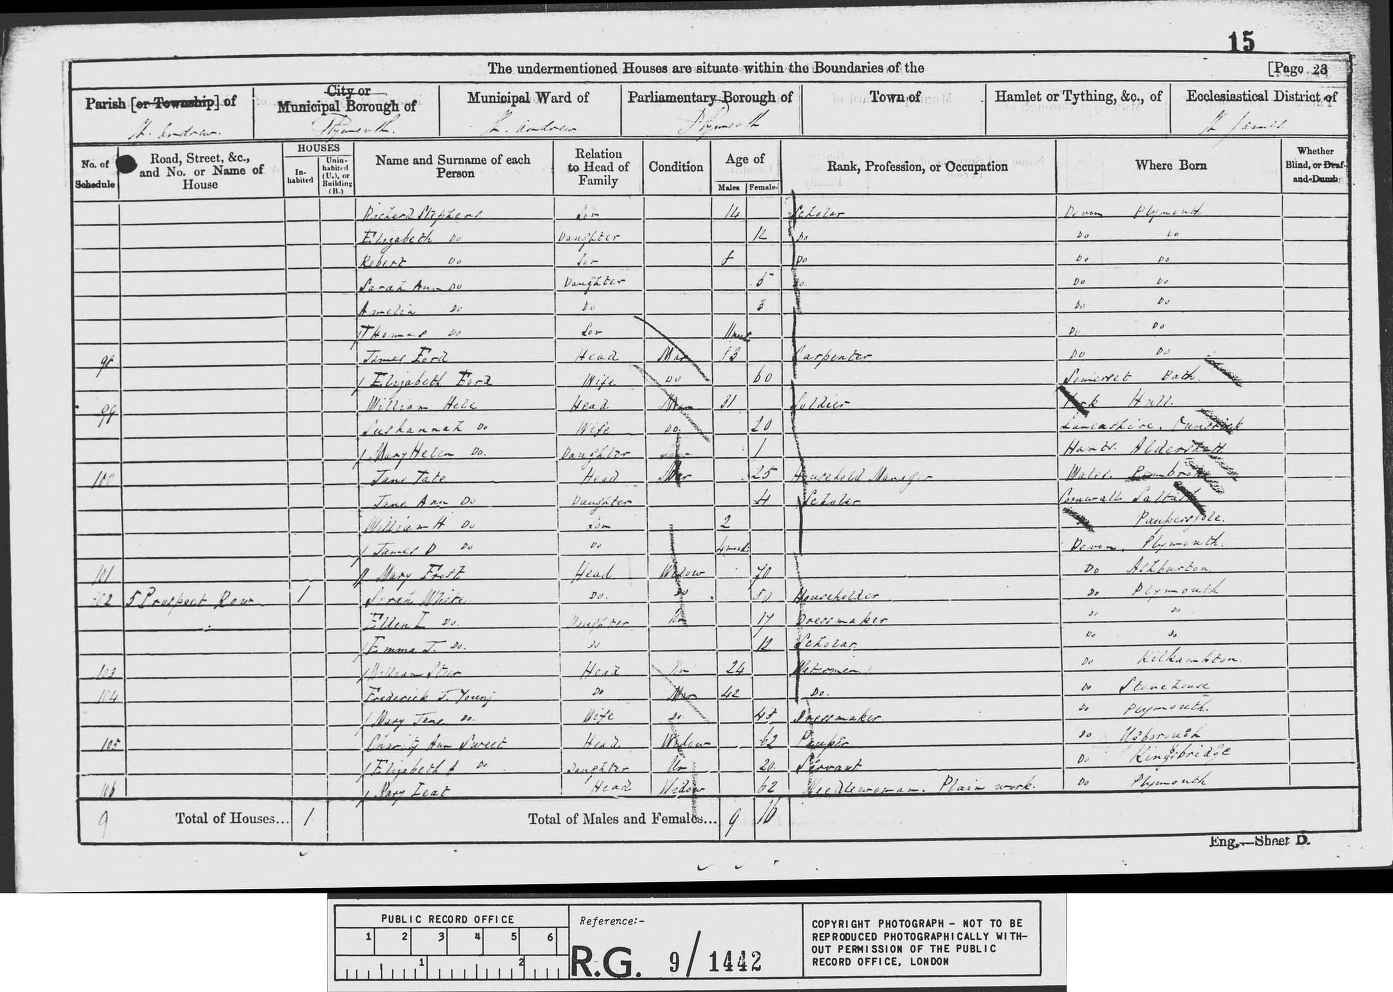 15
The undermentioned Houses are situate within the Boundaries of the [Page 28
Parish [or Township] of City or Municipal Borough of Municipal Ward of Parliamentary Borough of Town of Hamlet or Tything, &c., of Ecclesiastical District of
St. Andrew. Plymouth. St. Andrew Plymouth St James
No. of Schedule Road, Street, &c., and No. or Name of House HOUSES Inhabited Uninhabited (U.), or Building (B.) Name and Surname of each Person Relation to Head of Family Condition Age of Males Females Rank, Profession, or Occupation Where Born Whether Blind, or Deaf-and-Dumb
Richard Stephens Son 14 Scholar Devon Plymouth
Elizabeth Do Daughter 12 Do Do Do
Robert Do Son 8 Do Do Do
Sarah Ann Do Daughter 5 Do Do Do
Amelia Do Do 3 Do Do
Thomas Do Son Do Do
98 James Ford Head Mar Carpenter Do Do
Elizabeth Ford Wife Do 60 Somerset Bath
99 William Head Mar Soldier York Hull.
Sushannah Do Wife Do 20 Lancashire.
Mary Helen Do. Daughter 1 Hants.
100 Jane Tate Head Mar 25 Household Manager Wales.
Jane Ann Do Daughter 4 Scholar Cornwall Saltash
William H Do Son 2
James D Do Do Devon. Plymouth.
101 Mary Frost Head Widow 70 Do Ashburton
102 5 Prospect Row 1 Sarah White Do. Do 50 Householder Do Plymouth
Ellen L Do. Daughter Un 17 Dressmaker Do Do
Emma J. Do. Do 12 Scholar Do Do
103 William Head Un 24 Do Kilkhampton.
104 Frederick J. Young Do Mar 42 Do. Do Stonehouse
Mary Jane Do Wife Do 45 Dressmaker Do Plymouth.
105 Charity Ann Sweet Head Widow 62 Pauper Do
Elizabeth A Do Daughter Un 20 Servant Do Kingsbridge
106 Mary Head Widow 62 Needlewoman. Plain work. Do Plymouth
9 Total of Houses... 1 Total of Males and Females... 9 16
Eng.—Sheet D.
PUBLIC RECORD OFFICE
1 2 3 4 5 6
1 2
Reference:-
R.G. 9/1442
COPYRIGHT PHOTOGRAPH - NOT TO BE
REPRODUCED PHOTOGRAPHICALLY WITH-
OUT PERMISSION OF THE PUBLIC
RECORD OFFICE, LONDON